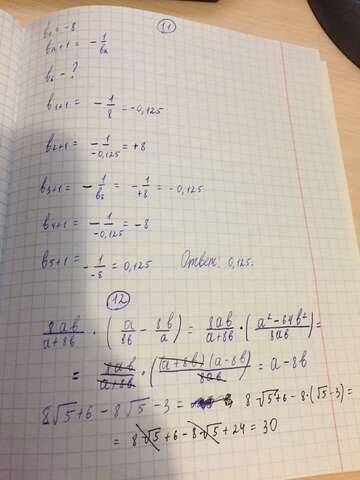 11
b₁ = -8
bₙ₊₁ = -1/bₙ
b₆ - ?
b₁₊₁ = -1/8 = -0,125
b₂₊₁ = -1/-0,125 = +8
b₃₊₁ = -1/b₃ = -1/+8 = -0,125
b₄₊₁ = -1/-0,125 = -8
b₅₊₁ = -1/-8 = 0,125 Ответ: 0,125.
12
8ab/a+8b · (a/8b - 8b/a) = 8ab/a+8b · (a²-64b²/8ab) =
= 8ab/a+8b · ((a+8b)(a-8b)/8ab) = a-8b
8√5+6 - 8√5-3 = 8√5+6-8·(√5-3) =
= 8√5+6-8√5+24=30